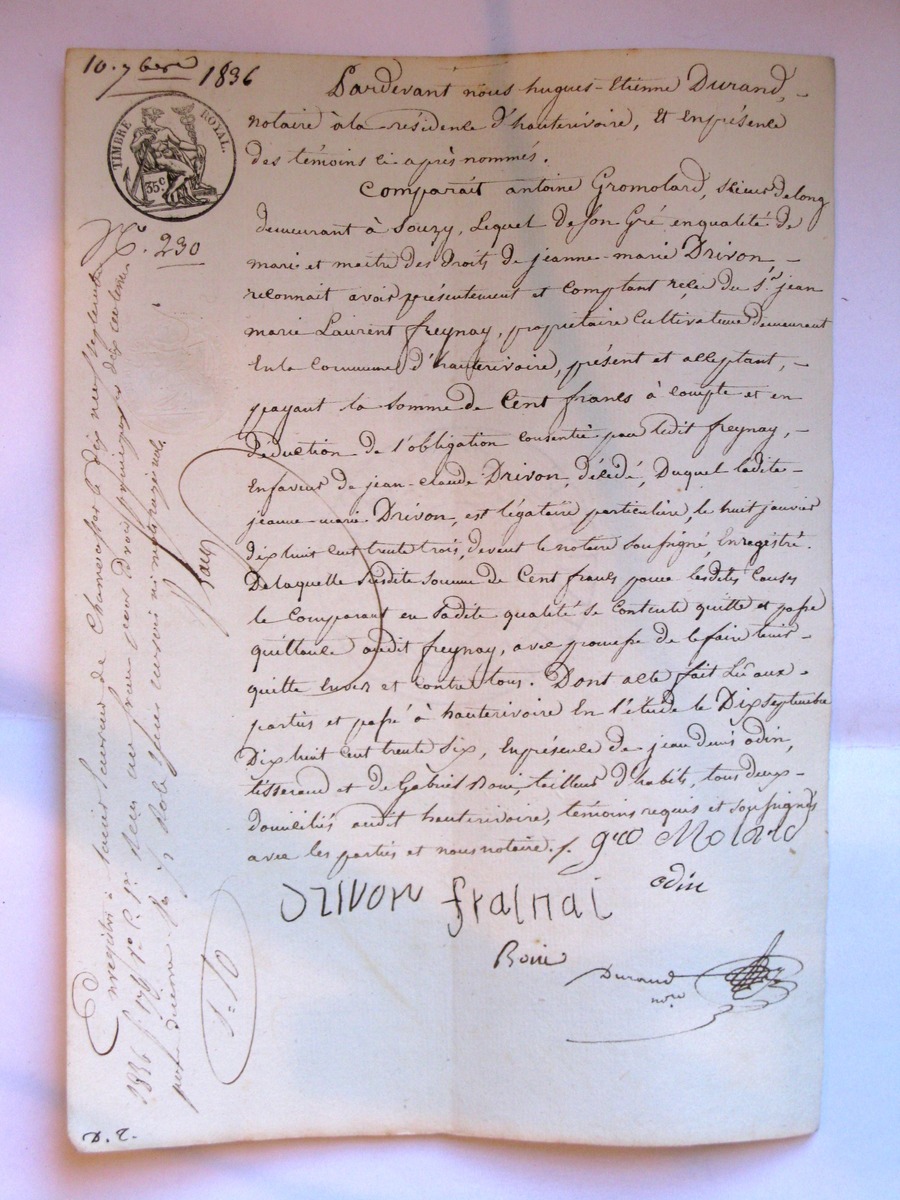 10. 7bere 1836
TIMBRE ROYAL.
35c
N°. 230
Pardevant nous hugues-Etienne Durand,
notaire à la résidence d'hauterivoire, Et En présence
des témoins ci après nommés.
Comparait antoine Gromolard, scieur de long
demeurant à Souzy, Lequel de son Gré en qualité de
mari et maitre des droits de jeanne-marie Drivon
reconnait avoir présentement et comptant reçu du Sr. jean
marie Laurent freynay, propriétaire cultivateur demeurant
En la Commune d'hauterivoire, présent et acceptant,
payant la somme de Cent francs à compte et en
déduction de l'obligation consentie par ledit freynay,
En faveur de jean-claude Drivon, décédé, Duquel ladite
jeanne-marie Drivon, est légataire particulière, le huit janvier
dix huit cent trente trois, devant le notaire soussigné, Enregistré.
De laquelle susdite somme de Cent francs pour lesdites Causes
le Comparant en sadite qualité se contente quitte et passe
quittance audit freynay, avec promesse de le faire tenir
quitte Envers et contre tous. Dont acte fait Lû aux
parties et passé à hauterivoire En l'étude le Dix septembre
Dix huit cent trente six, En présence de jean denis odin,
tisserand et de Gabriel Boni, tailleur d'habits, tous deux
domiciliés audit hauterivoire, témoins requis et soussignés
avec les parties et nous notaire.
gro Molard
odin
Drivon fralnai
Boni
Durand
nore
Enregistré à Saint Laurent de Chamousset le dix neuf septembre
1836 fo 179 Ro C.
1=10
D. T.